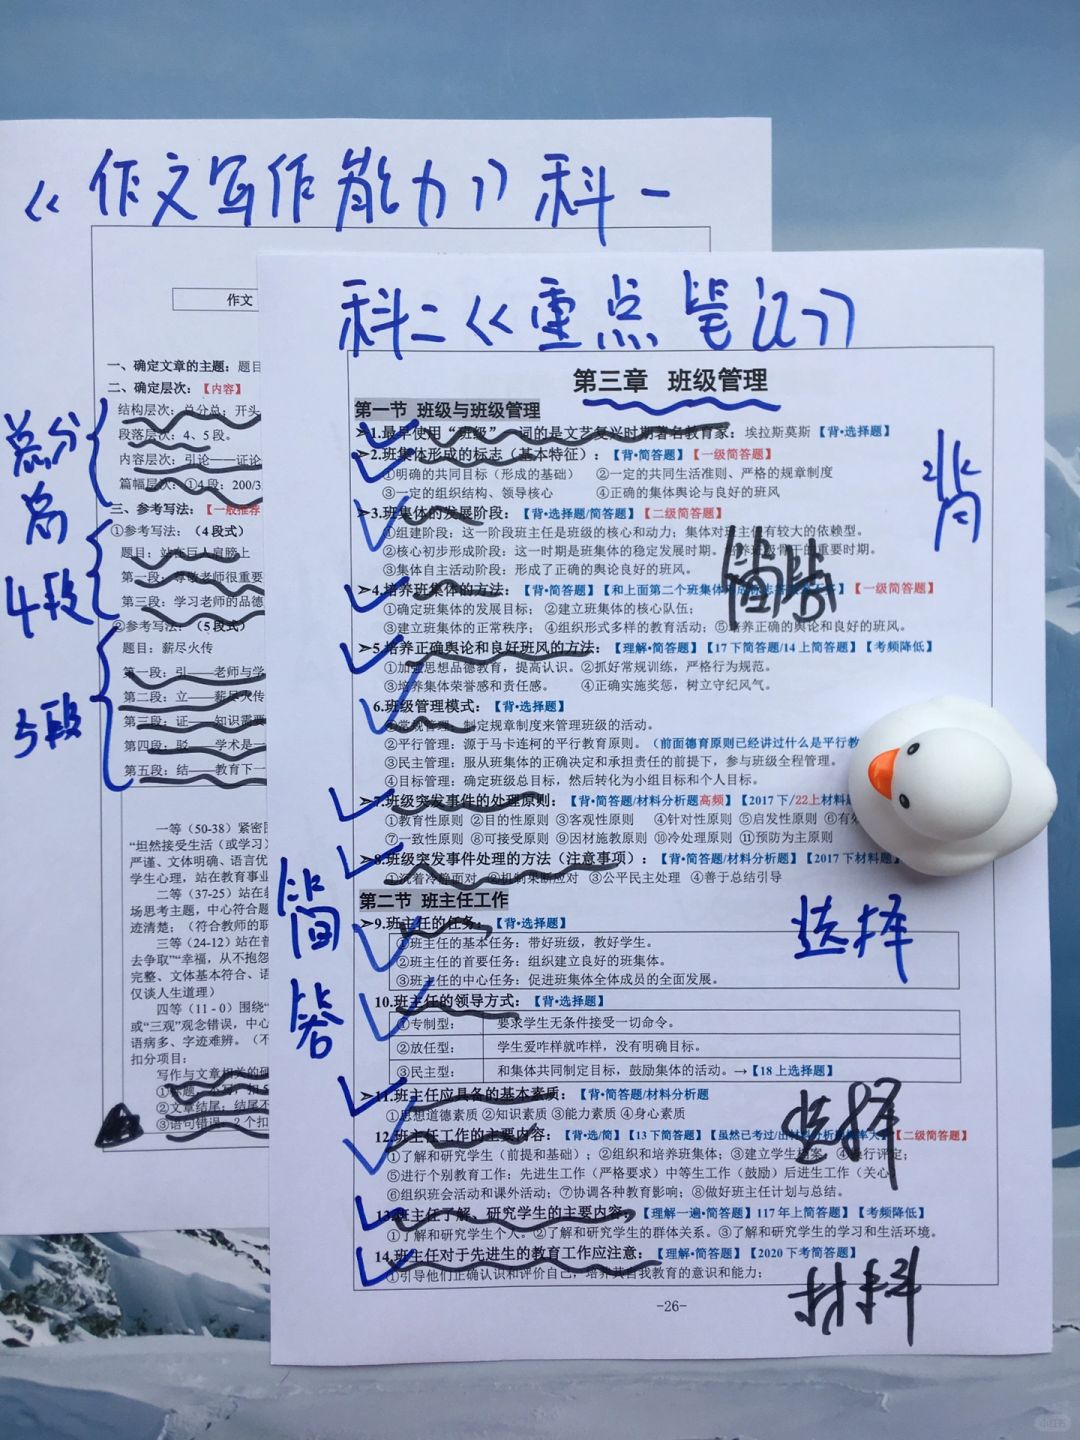 《作文写作能力》科一
作文
一、确定文章的主题：题目
二、确定层次：【内容】
结构层次：总分总：开头
段落层次：4、5段。
内容层次：引论——证论
篇幅层次：①4段：200/3
三、参考写法：【一般推荐
①参考写法：（4段式）
题目：站在巨人肩膀上
第一段：尊敬老师很重要
第三段：学习老师的品德
②参考写法：（5段式）
题目：薪尽火传
第一段：引——老师与学
第二段：立——薪尽火传
第三段：证——知识需要
第四段：驳——学术是一
第五段：结——教育下一
总分
总
4段
5段
一等（50-38）紧密
“坦然接受生活（或学习）
严谨、文体明确、语言优
学生心理，站在教育事业
二等（37-25）站在
场思考主题，中心符合题
迹清楚；（符合教师的职
三等（24-12）站在
去争取”“幸福，从不抱怨
完整、文体基本符合、语
仅谈人生道理）
四等（11 - 0）围绕“
或“三观”观念错误，中心
语病多、字迹难辨。（不
扣分项目：
写作与文章相关的
②文章结尾：结尾不
③语句错误：2个扣
科二《重点笔记》
第三章 班级管理
第一节 班级与班级管理
➢1.最早使用“班级”一词的是文艺复兴时期著名教育家：埃拉斯莫斯【背•选择题】
➢2.班集体形成的标志（基本特征）：【背•简答题】【一级简答题】
①明确的共同目标（形成的基础） ②一定的共同生活准则、严格的规章制度
③一定的组织结构、领导核心 ④正确的集体舆论与良好的班风
➢3.班集体的发展阶段：【背•选择题/简答题】【二级简答题】
①组建阶段：这一阶段班主任是班级的核心和动力；集体对班主任有较大的依赖型。
②核心初步形成阶段：这一时期是班集体的稳定发展时期。培养班级骨干的重要时期。
③集体自主活动阶段：形成了正确的舆论良好的班风。
➢4.培养班集体的方法：【背•简答题】【和上面第二个班集体【一级简答题】
①确定班集体的发展目标； ②建立班集体的核心队伍；
③建立班集体的正常秩序； ④组织形式多样的教育活动；⑤培养正确的舆论和良好的班风。
➢5 培养正确舆论和良好班风的方法：【理解•简答题】【17下简答题/14上简答题】【考频降低】
①加强思想品德教育，提高认识。②抓好常规训练，严格行为规范。
③培养集体荣誉感和责任感。 ④正确实施奖惩，树立守纪风气。
6.班级管理模式：【背•选择题】
①常规管理：制定规章制度来管理班级的活动。
②平行管理：源于马卡连柯的平行教育原则。（前面德育原则已经讲过什么是平行教
③民主管理：服从班集体的正确决定和承担责任的前提下，参与班级全程管理。
④目标管理：确定班级总目标，然后转化为小组目标和个人目标。
➢7.班级突发事件的处理原则：【背•简答题/材料分析题高频】【2017下/22上材料
①教育性原则 ②目的性原则 ③客观性原则 ④针对性原则 ⑤启发性原则 ⑥有效
⑦一致性原则 ⑧可接受原则 ⑨因材施教原则 ⑩冷处理原则 ⑪预防为主原则
➢8.班级突发事件处理的方法（注意事项）：【背•简答题/材料分析题】【2017下材料题
①沉着冷静面对 ②机制果断应对 ③公平民主处理 ④善于总结引导
第二节 班主任工作
➢9.班主任的任务：【背•选择题】
①班主任的基本任务：带好班级，教好学生。
②班主任的首要任务：组织建立良好的班集体。
③班主任的中心任务：促进班集体全体成员的全面发展。
10.班主任的领导方式：【背•选择题】
①专制型： 要求学生无条件接受一切命令。
②放任型： 学生爱咋样就咋样，没有明确目标。
③民主型： 和集体共同制定目标，鼓励集体的活动。→【18上选择题】
➢11.班主任应具备的基本素质：【背•简答题/材料分析题
①思想道德素质 ②知识素质 ③能力素质 ④身心素质
12.班主任工作的主要内容：【背•选/简】【13下简答题】【虽然已考过/出【二级简答题】
①了解和研究学生（前提和基础）；②组织和培养班集体；③建立学生档案；④操行评定；
⑤进行个别教育工作：先进生工作（严格要求）中等生工作（鼓励）后进生工作（关心
⑥组织班会活动和课外活动；⑦协调各种教育影响；⑧做好班主任计划与总结。
13.班主任了解、研究学生的主要内容：【理解一遍•简答题】117年上简答题】【考频降低】
①了解和研究学生个人。②了解和研究学生的群体关系。③了解和研究学生的学习和生活环境。
14.班主任对于先进生的教育工作应注意：【理解•简答题】【2020下考简答题】
①引导他们正确认识和评价自己，培养其自我教育的意识和能力；
-26-
背
简答
简答
选择
选择
材料
小红书